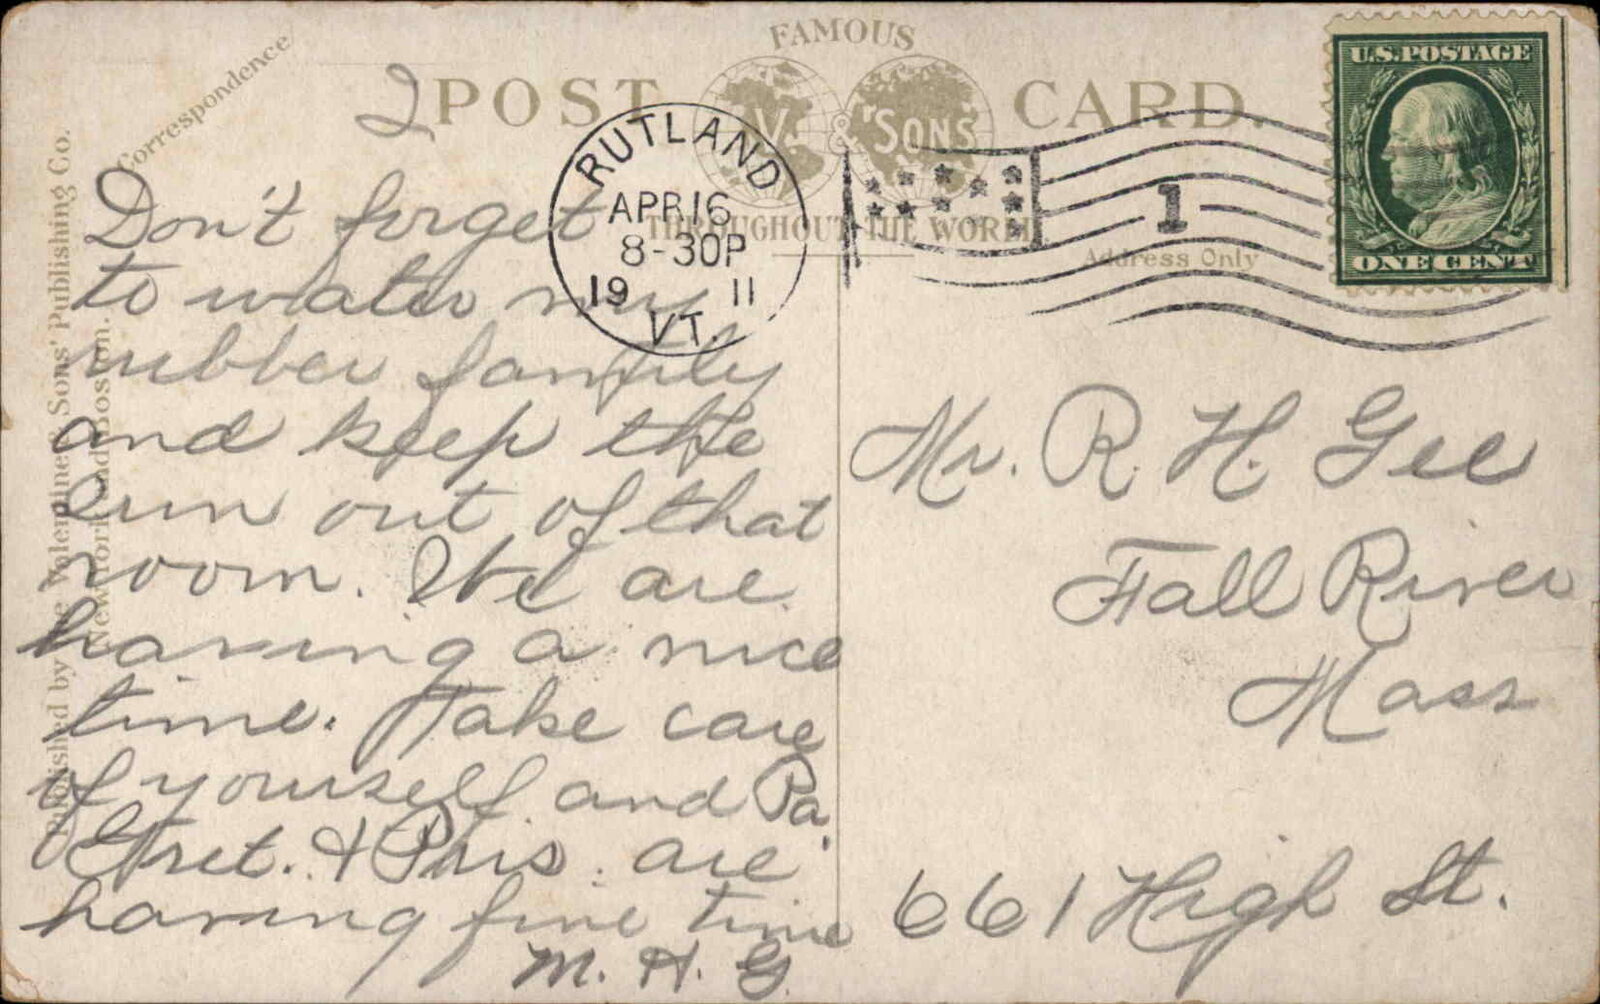 FAMOUS
POST CARD.
V. & SONS
THROUGHOUT THE WORLD
Correspondence
Address Only
Published by The Valentine & Sons' Publishing Co.
New York and Boston.
2
RUTLAND
APR 16
8-30P
19 11
VT.
1
U.S. POSTAGE
ONE CENT
Don't forget
to water my
rubber family
and keep the
sun out of that
room. We are
having a nice
time. Take care
of yourself and Pa.
Gret. & Phis. are
having fine time
M. H. G.
Mr. R. H. Gee
Fall River
Mass
661 High St.